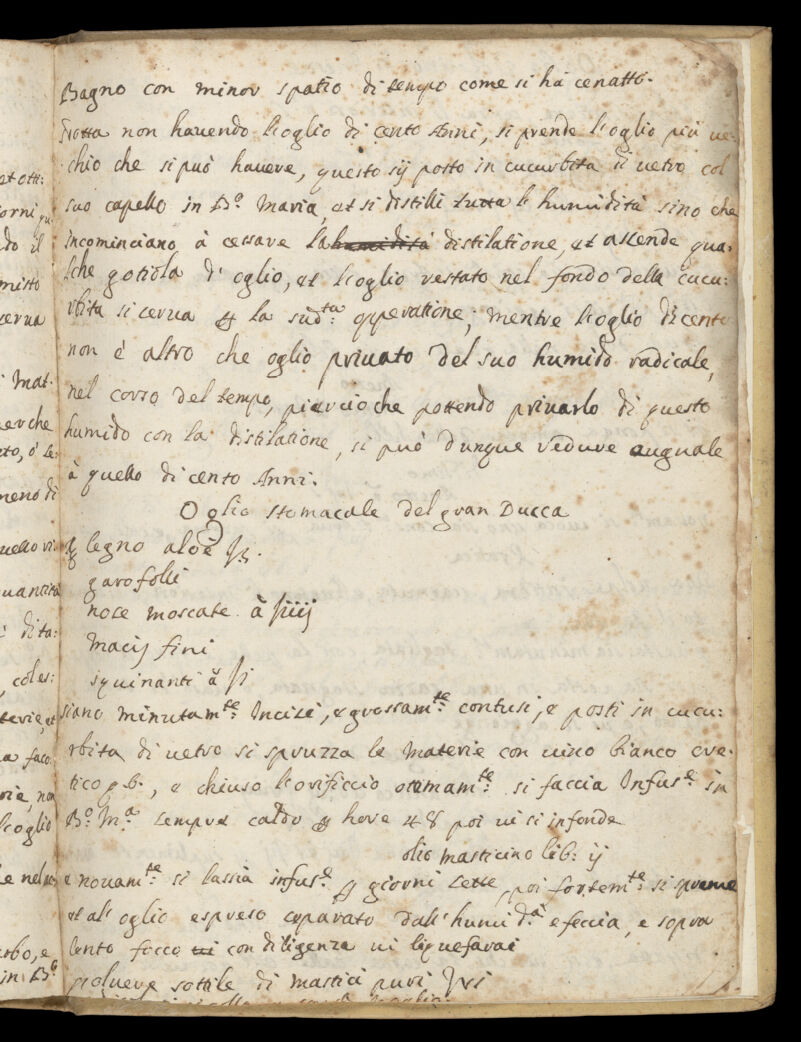 Bagno con minor spatio di tempo come si hà cenatto.
non hauendo l'oglio di cento Anni, si prende l'oglio più ue:
chio che si può hauere, questo sij posto in cucurbita di uetro col
suo capello in B.º Maria, et si distilli tutta l' humidità sino che
incominciano à cessare la humidità distilatione, et assende qual:
che gotiola d' oglio, et l'oglio restato nel fondo della cucu:
rbita si cerua la sud.ta opperatione; mentre l'oglio di cento
non è altro che oglio priuato del suo humido radicale,
nel corso del tempo, potendo priuarlo di questo
humido con la distilatione, si può dunque redure auguale
à quello di cento Anni.
Oglio stomacale del gran Ducca
legno aloè
garofolli
noce moscate à
Macij fini
squinanti ā
siano minutam.te Incisi, e grossam.te contusi, e posti in cucu:
rbita di uetro si spruzza le materie con uino bianco cre:
tico q.b., e chiuso l'orificcio otimam.te si faccia Infus.e in
B.º M.a sempre caldo hore 48 poi ui si infonde
olio masticino lib: ij
e nouam.te si lassia infus.e giorni sette, poi fortem.te si spreme
et al' oglio espreso separato dall' humid.à e feccia, e sopra
lento foco con diligenza ui liquefarai
poluere sottile di mastici puri